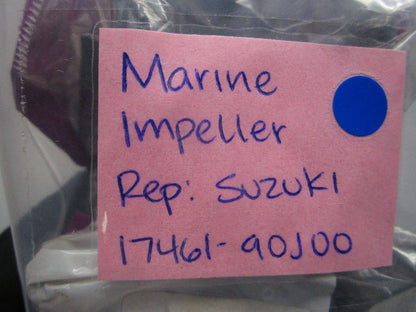 Marine
Impeller
Rep: SUZUKI
17461-90J00